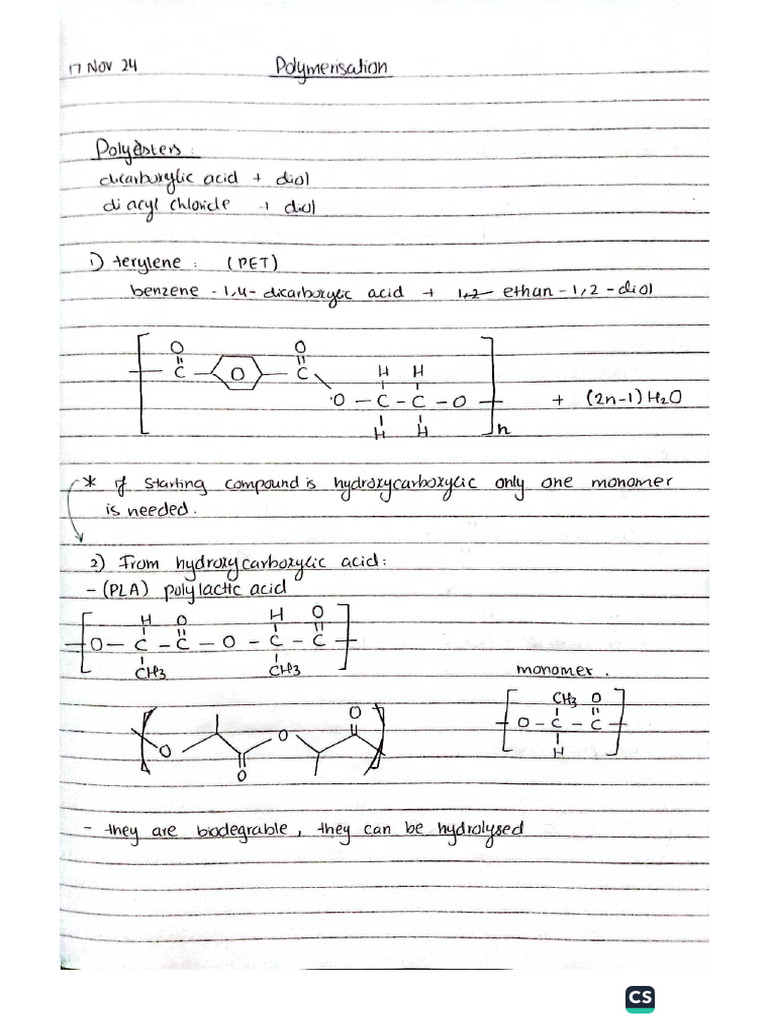 17 Nov 24
Polymerisation
Polyesters:
dicarboxylic acid + diol
di acyl chloride + diol
1) terylene: (PET)
benzene -1,4- dicarboxylic acid + 1,2- ethan-1,2-diol
O O
C C H H
O
O - C - C - O + (2n-1) H2O
H H n
* if starting compound is hydroxycarboxylic only one monomer
is needed.
2) From hydroxycarboxylic acid:
- (PLA) polylactic acid
H O H O
O - C - C - O - C - C
CH3 CH3
monomer.
CH3 O
O - C - C
H
O
O O
O
- they are biodegrable, they can be hydrolysed
CS